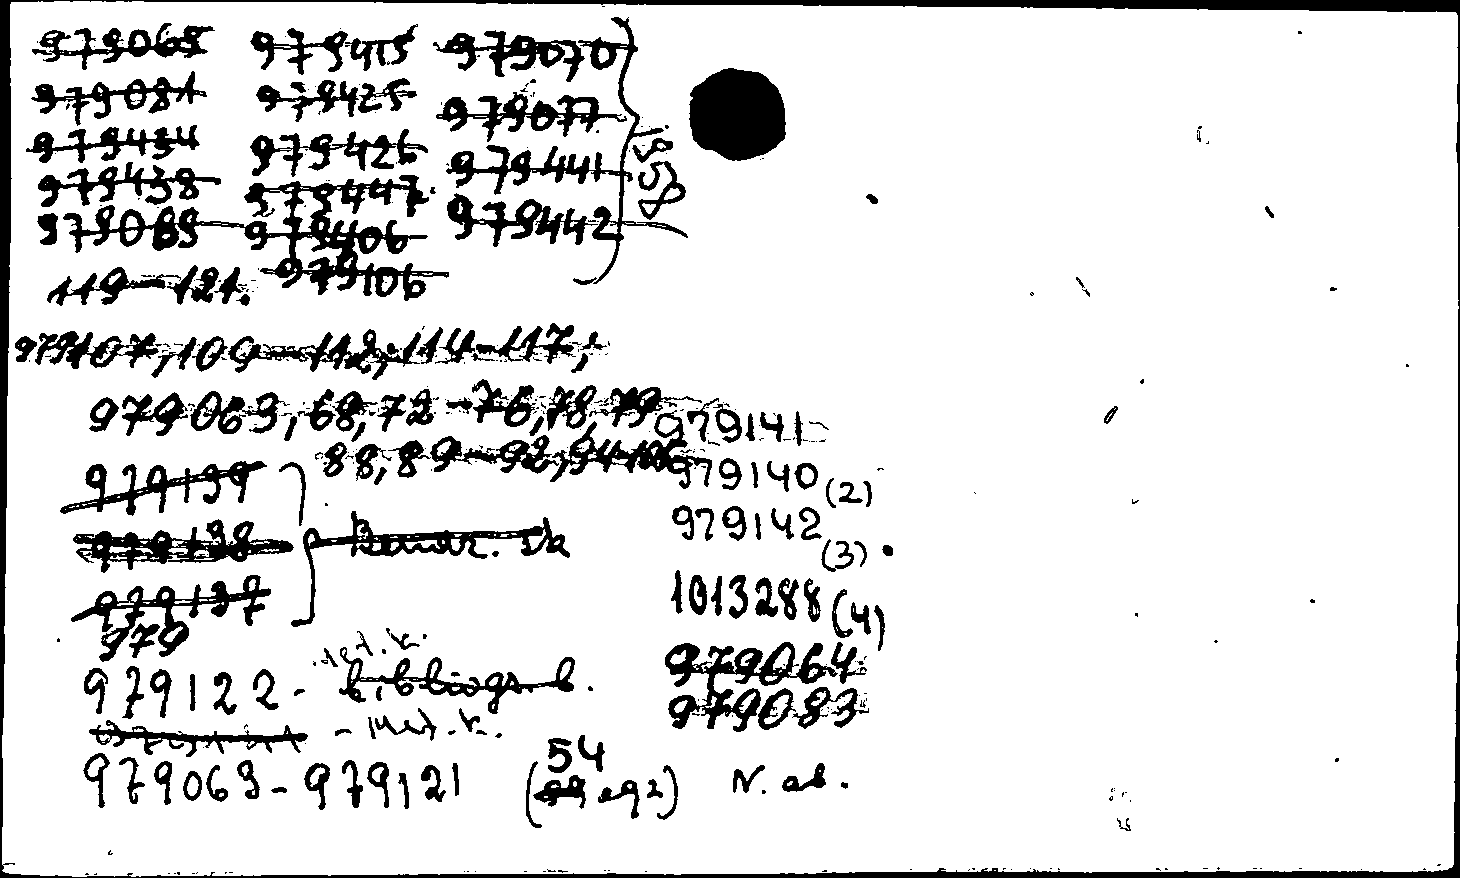 979065 979415 979070
979081 979425 979077
979434 979426 979441
979438 979447 979442
979089 979406
119-121. 979106
979107, 109-112, 114-117;
979063, 68, 72-76, 78, 79
979141
88, 89-92, 94-106
979139
979140 (2)
979138
979142 (3)
979137
1013288 (4)
979
979064
979122 - bibliogr. b.
979083
- Med. k.
979063-979121 (54 egz) N. ab.